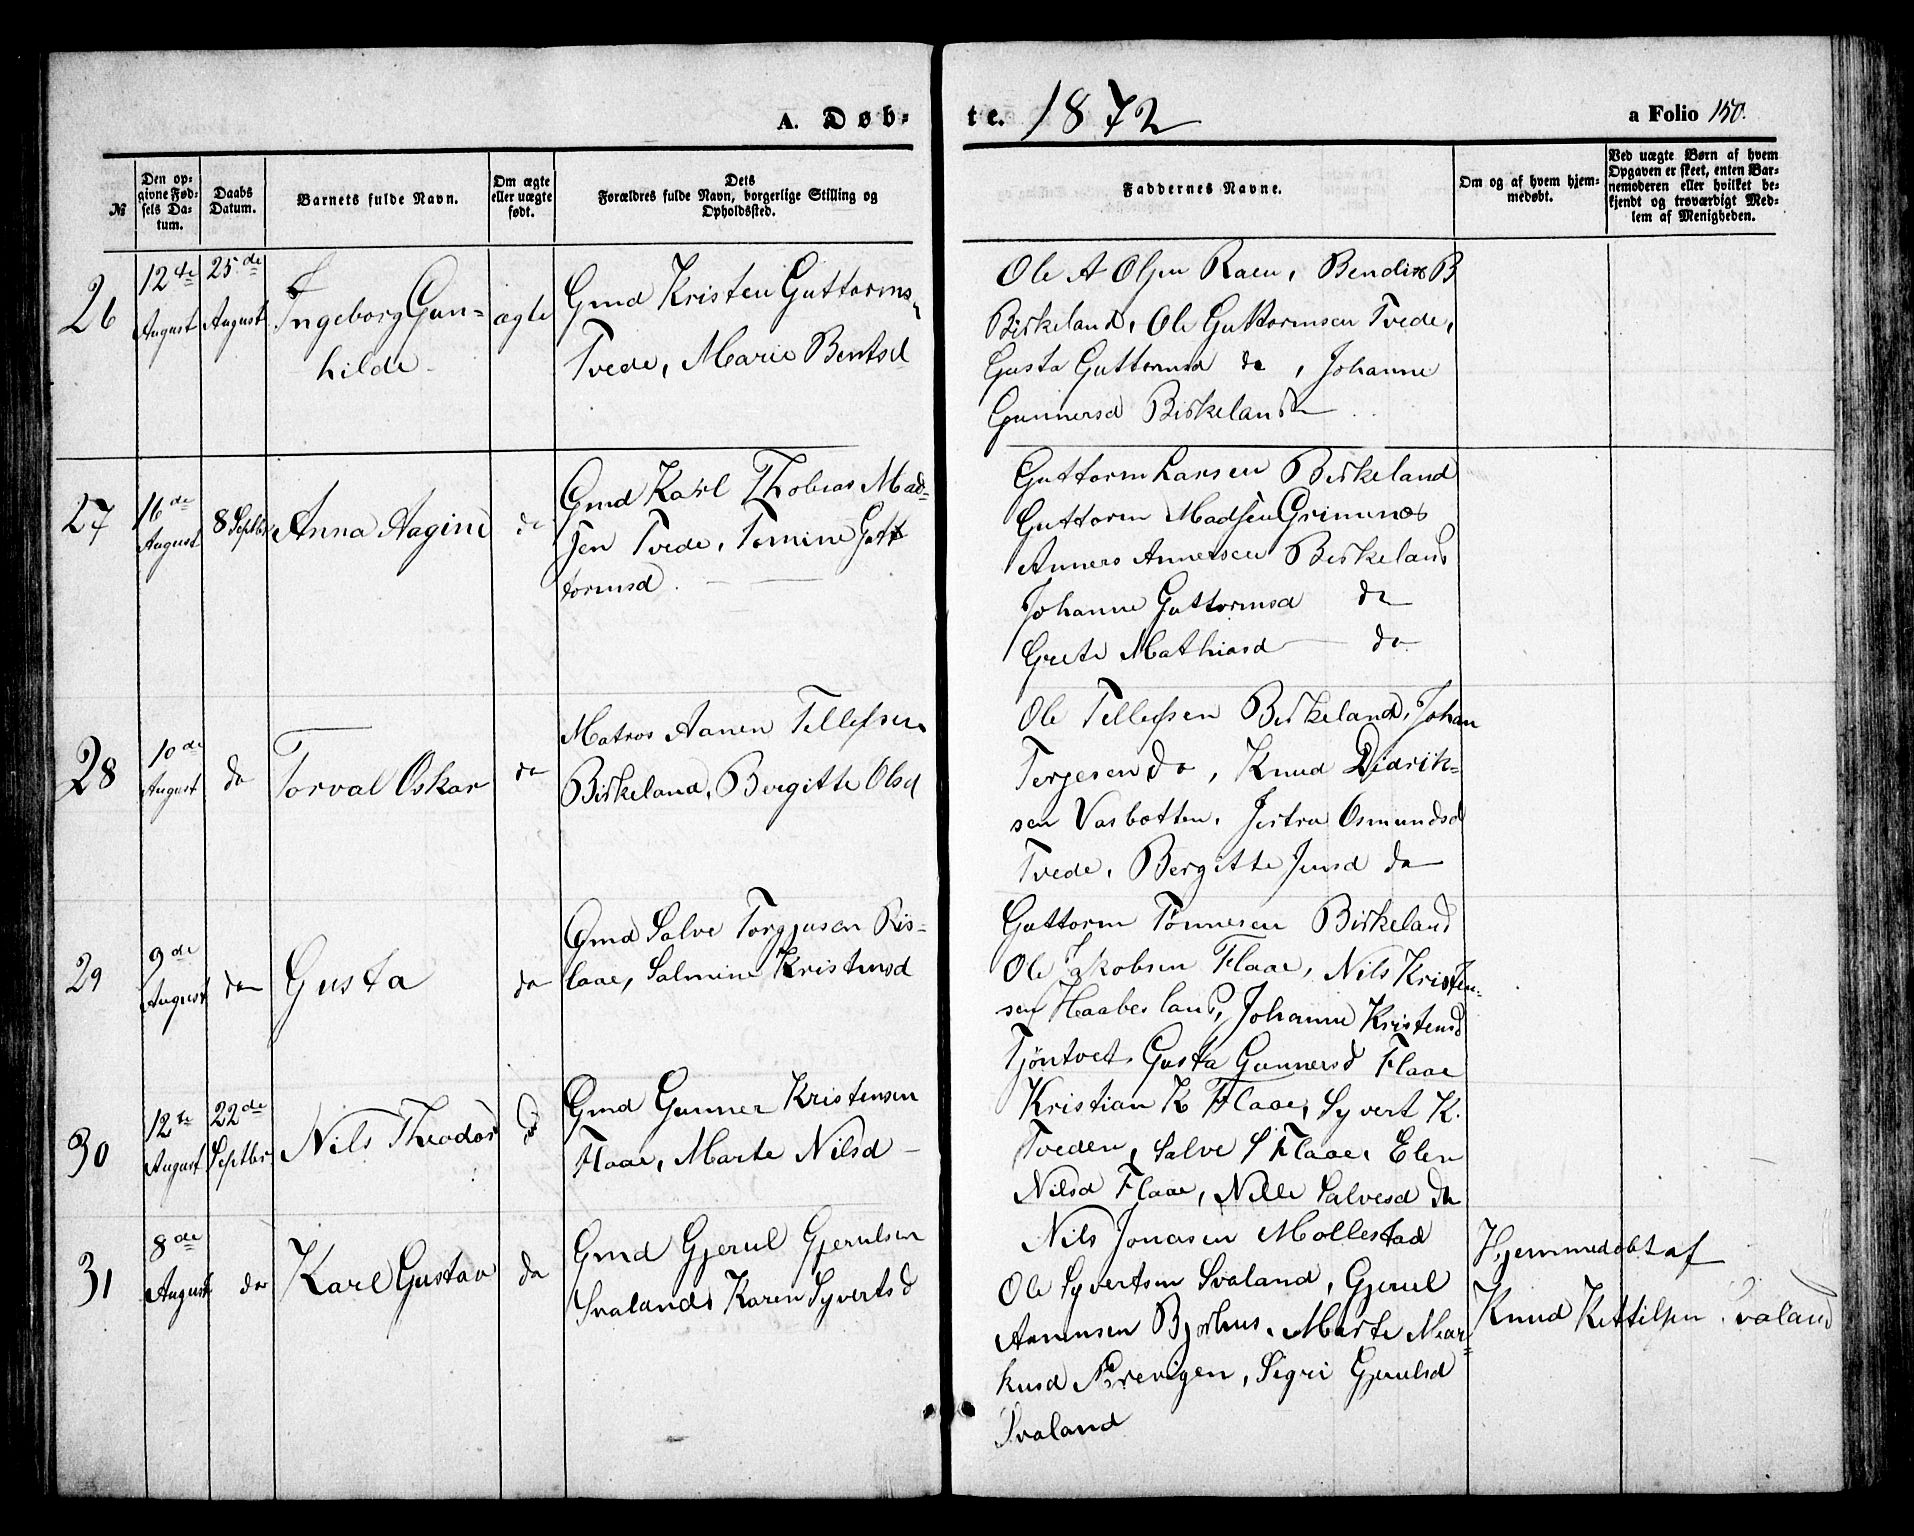 A. Døb-
te. 1872
a Folio 150.
№
Den op-
givne Fød-
sels Da-
tum.
Daabs
Datum.
Barnets fulde Navn.
Om ægte
eller uægte
født.
Dets
Forældres fulde Navn, borgerlige Stilling og
Opholdssted.
Faddernes Navne.
Om og af hvem hjem-
medøbt.
Ved uægte Børn af hvem
Opgaven er skeet, enten Bar-
nemoderen eller hvilket be-
kjendt og troværdigt Med-
lem af Menigheden.
26
12te
August
25de
August
Ingeborg Gun-
hilde
ægte
Gmd Kristen Guttorms.
Tvede, Marie Bentsd
Ole A Olsen Raen, Bendix B
Birkeland, Ole Guttormsen Tvede,
Gusta Guttormsd do, Johanne
Gunnersd Birkeland
27
16de
August
8 Septbr
Anna Aagine
do
Gmd Karl Thobias Mad-
sen Tvede, Tomine Gutt
tormsd.
Guttorm Larsen Birkeland
Guttorm Madsen Grimnes
Anners Annersen Birkeland
Johanne Guttormsd do
Grete Mathiasd do
28
10de
August
do
Torval Oskar
do
Matros Aanen Tellefsen
Birkeland, Bergitte Olsd
Ole Tellefsen Birkeland, Johan
Terjesen do, Knud Didrik-
sen Vasbotten, Jertru Osmundsd
Tvede, Bergitte Jensd do
29
9de
August
do
Gusta
do
Gmd Salve Torgjusen Ris-
laae, Salmine Kristensd
Guttorm Tønnesen Birkeland
Ole Jakobsen Flaae, Nils Kristen-
sen Haabesland, Johanne Kristensd
Tjöntvet, Gusta Gunnersd Flaae
30
12te
August
22de
Septbr.
Nils Theodor
do
Gmd Gunner Kristensen
Flaae, Marte Nilsd
Kristian K Flaae, Syvert K.
Tveden, Salve S Flaae, Elen
Nilsd Flaae, Nille Salvesd do
31
8de
August
do
Karl Gustav
do
Gmd Gjerul Gjerulsen
Svaland, Karen Syvertsd
Nils Jonasen Mollestad
Ole Syvertsen Svaland, Gjerul
Aanensen Bjorhus, Marte Mar-
kusd Perevigen, Sigri Gjerulsd
Svaland
Hjemmedøbt af
Knud Kettilsen Svaland